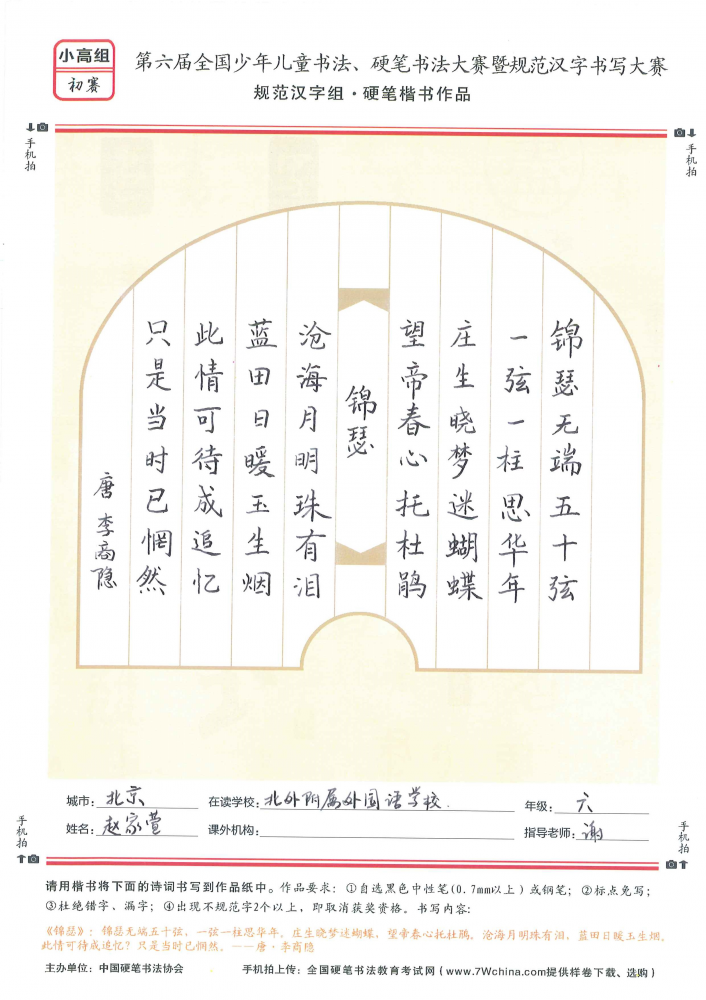 小高组
初赛
第六届全国少年儿童书法、硬笔书法大赛暨规范汉字书写大赛
规范汉字组·硬笔楷书作品
手机拍
手机拍
锦瑟无端五十弦
一弦一柱思华年
庄生晓梦迷蝴蝶
望帝春心托杜鹃
锦瑟
沧海月明珠有泪
蓝田日暖玉生烟
此情可待成追忆
只是当时已惘然
唐 李商隐
城市：北京 在读学校：北外附属外国语学校. 年级：六
姓名：赵家萱 课外机构： 指导老师：谢
手机拍
手机拍
请用楷书将下面的诗词书写到作品纸中。作品要求：①自选黑色中性笔(0.7mm以上)或钢笔；②标点免写；
③杜绝错字、漏字；④出现不规范字2个以上，即取消获奖资格。书写内容：
《锦瑟》：锦瑟无端五十弦，一弦一柱思华年。庄生晓梦迷蝴蝶，望帝春心托杜鹃。沧海月明珠有泪，蓝田日暖玉生烟。
此情可待成追忆？只是当时已惘然。——唐·李商隐
主办单位：中国硬笔书法协会 手机拍上传：全国硬笔书法教育考试网（www.7Wchina.com提供样卷下载、选购）